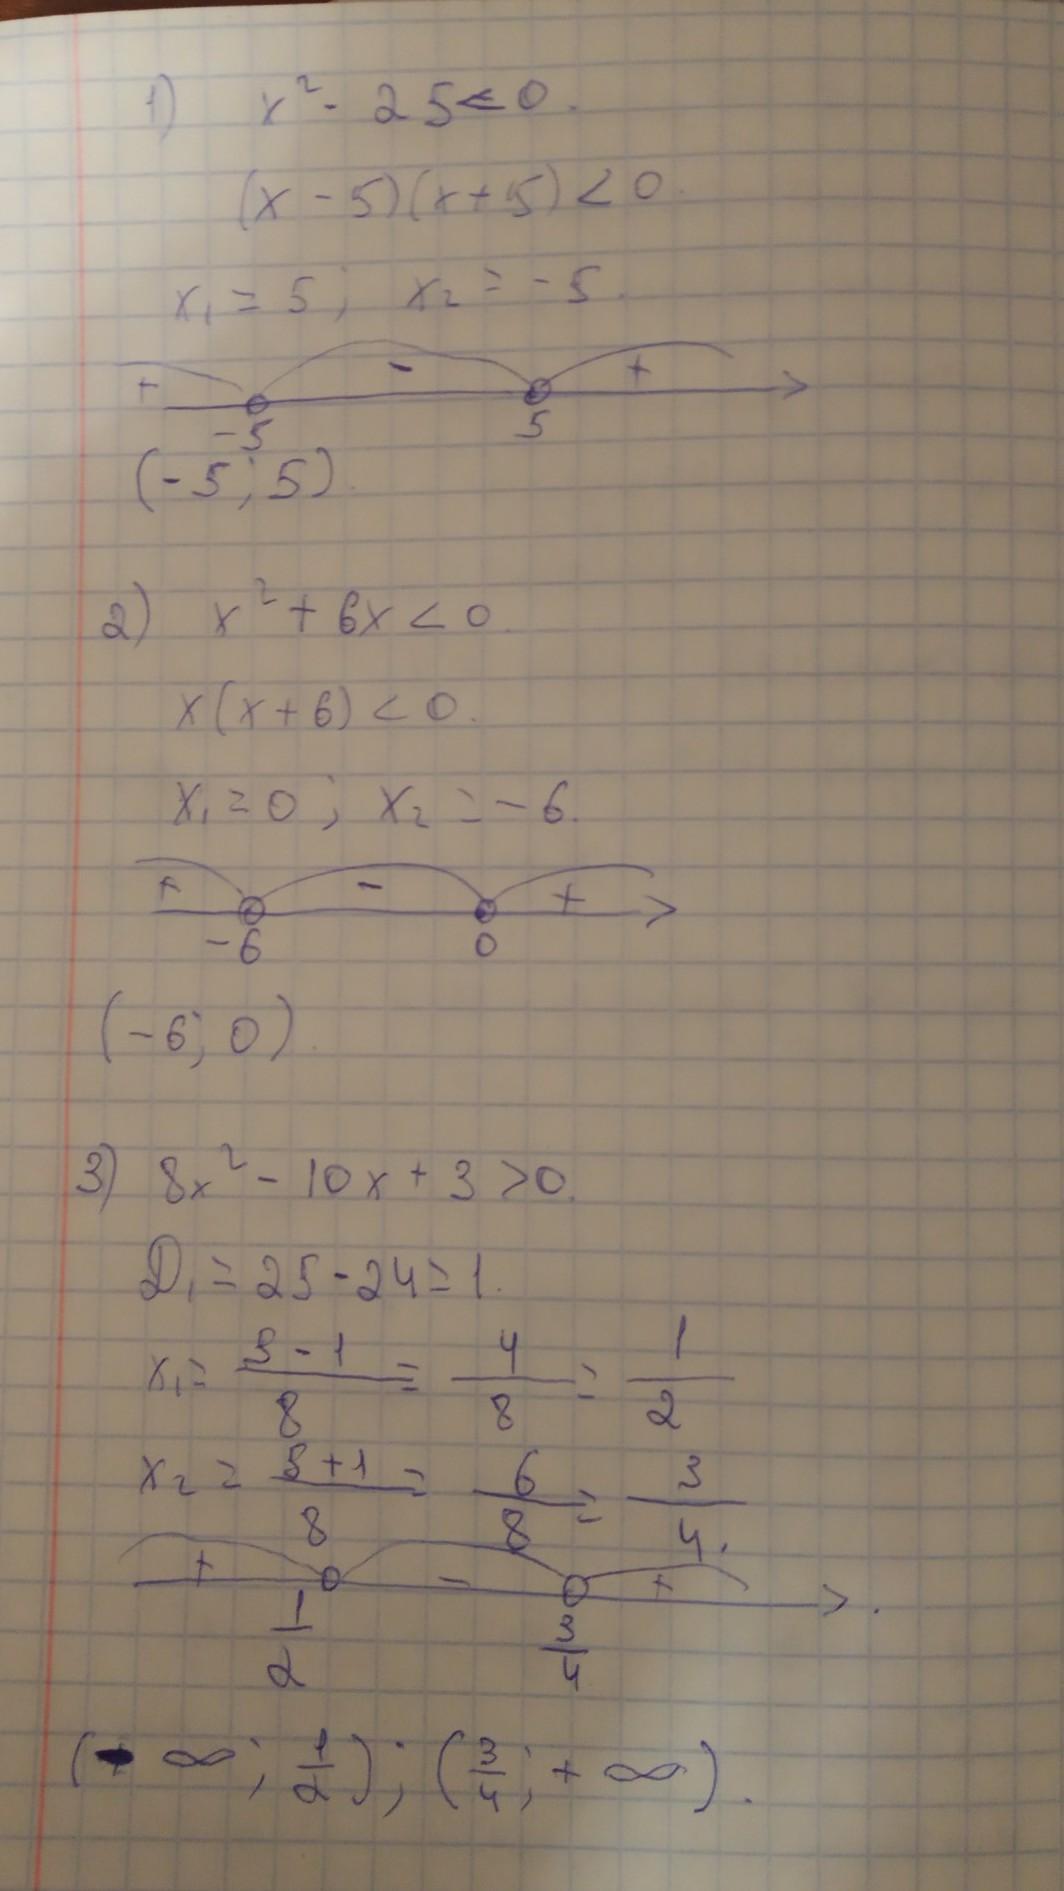 1) x² - 25 < 0.
(x - 5)(x + 5) < 0.
x₁ = 5; x₂ = -5.
+ - +
-5 5
(-5; 5).
2) x² + 6x < 0.
x(x + 6) < 0.
x₁ = 0; x₂ = -6.
+ - +
-6 0
(-6; 0).
3) 8x² - 10x + 3 > 0.
D₁ = 25 - 24 = 1.
x₁ = (5 - 1)/8 = 4/8 = 1/2
x₂ = (5 + 1)/8 = 6/8 = 3/4.
+ - + .
1/2 3/4
(- ∞; 1/2); (3/4; + ∞).